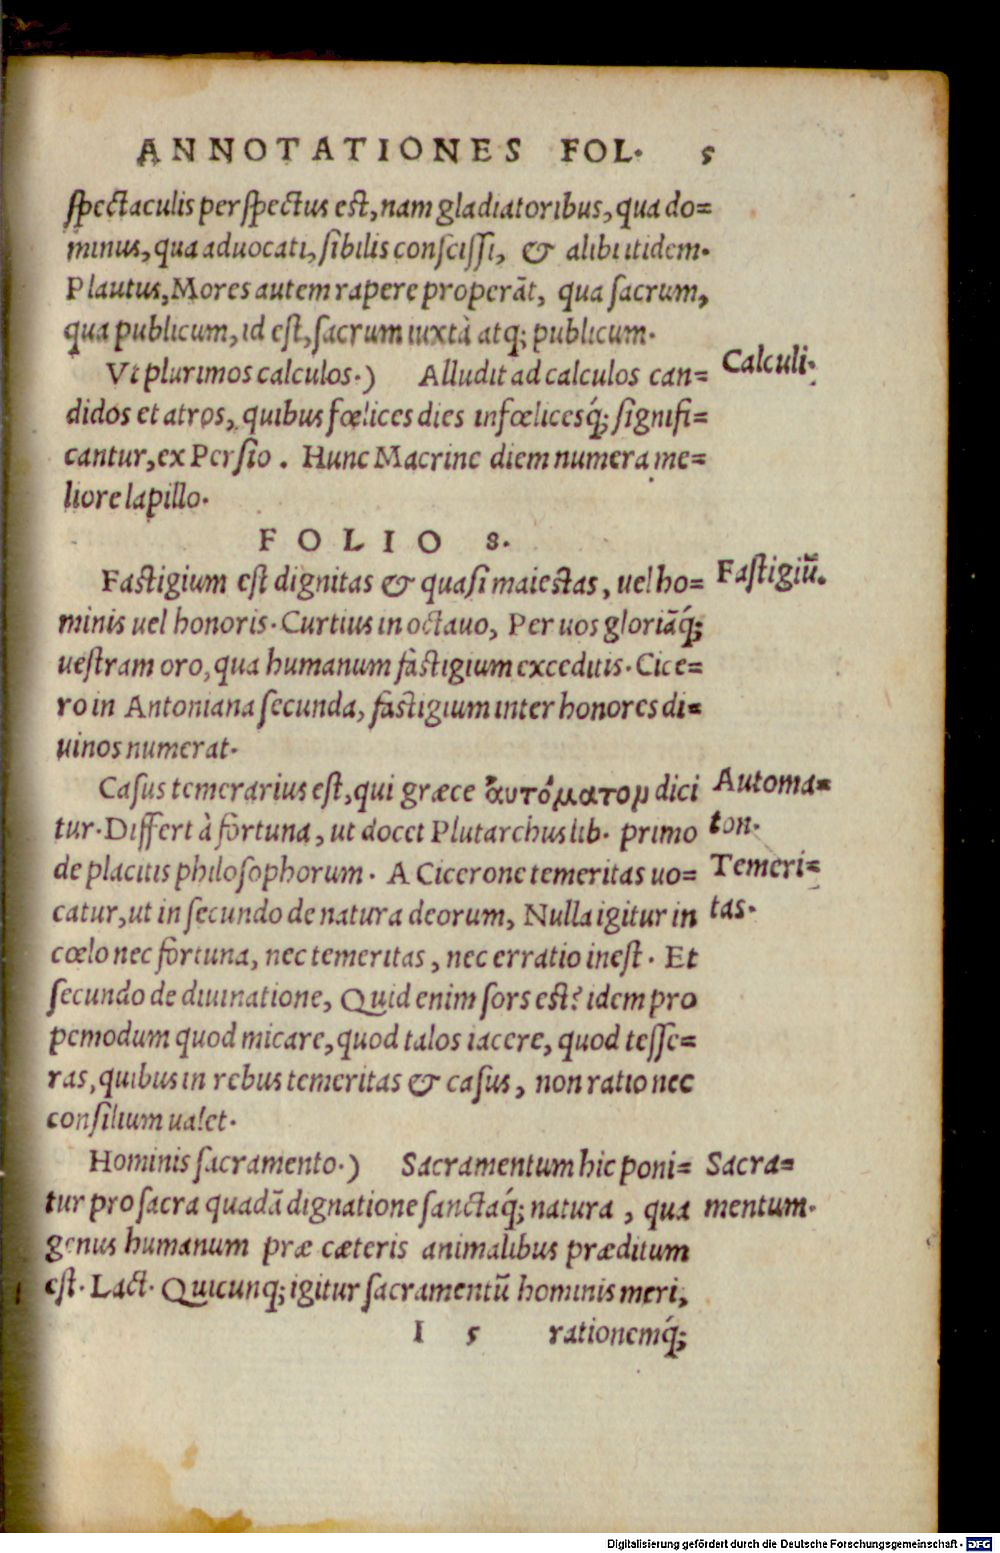 ANNOTATIONES FOL. 5
spectaculis perspectus est, nam gladiatoribus, qua do=
minus, qua aduocati, sibilis conscissi, & alibi itidem.
Plautus, Mores autem rapere properāt, qua sacrum,
qua publicum, id est, sacrum iuxtà atq; publicum.
Vt plurimos calculos.) Alludit ad calculos can=
Calculi.
didos et atros, quibus fœlices dies infœlicesq́; signifi=
cantur, ex Persio. Hunc Macrine diem numera me=
liore lapillo.
FOLIO 8.
Fastigium est dignitas & quasi maiestas, uel ho=
Fastigiū.
minis uel honoris. Curtius in octauo, Per uos gloriāq́;
uestram oro, qua humanum fastigium exceditis. Cice=
ro in Antoniana secunda, fastigium inter honores di=
uinos numerat.
Casus temerarius est, qui græce ἀυτόματον dici
Automa=
tur. Differt à fortuna, ut docet Plutarchus lib. primo
ton.
de placitis philosophorum. A Cicerone temeritas uo=
Temeri=
catur, ut in secundo de natura deorum, Nulla igitur in
tas.
cœlo nec fortuna, nec temeritas, nec erratio inest. Et
secundo de diuinatione, Quid enim sors est? idem pro
pemodum quod micare, quod talos iacere, quod tesse=
ras, quibus in rebus temeritas & casus, non ratio nec
consilium ualet.
Hominis sacramento.) Sacramentum hic poni=
Sacra=
tur pro sacra quadā dignatione sanctaq́; natura, qua
mentum.
genus humanum præ cæteris animalibus præditum
est. Lact. Quicunq; igitur sacramentū hominis meri,
I 5 rationemq́;
Digitalisierung gefördert durch die Deutsche Forschungsgemeinschaft - DFG